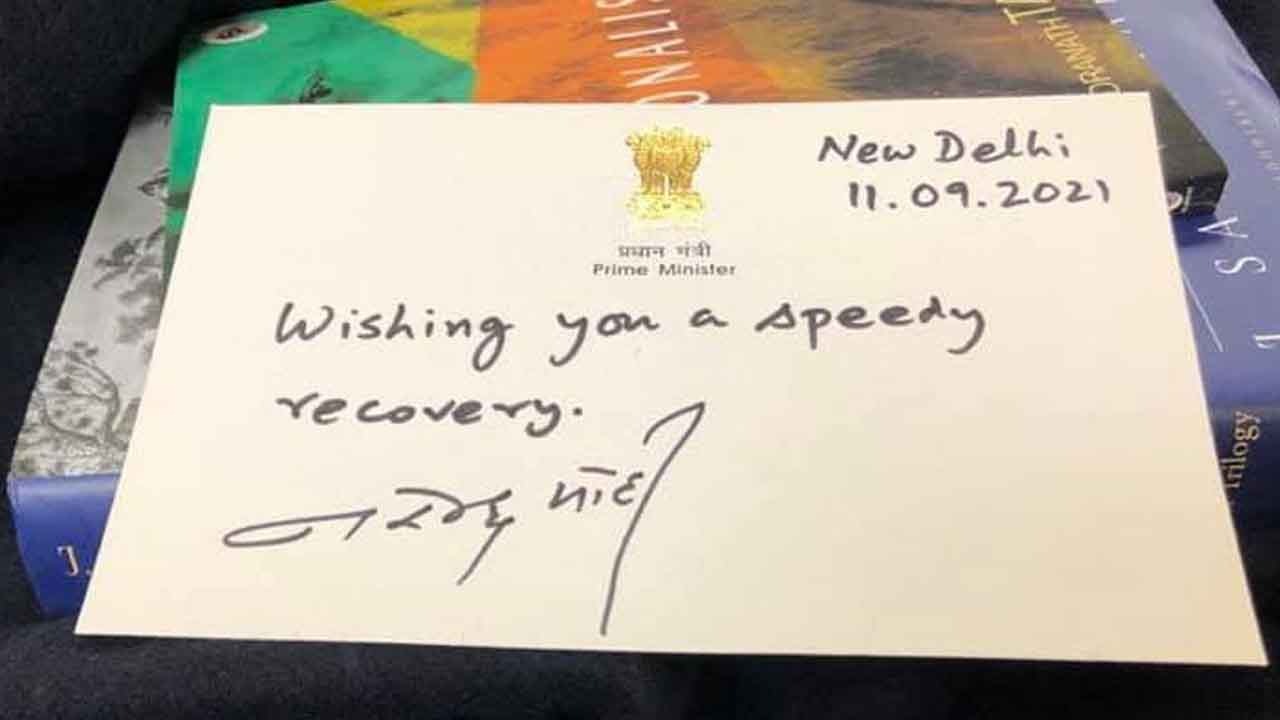 ONALIS
DRANATH TA
New Delhi
11.09.2021
प्रधान मंत्री
Prime Minister
Wishing you a speedy
recovery.
नरेन्द्र मोदी
J.
SA
J
Trilogy